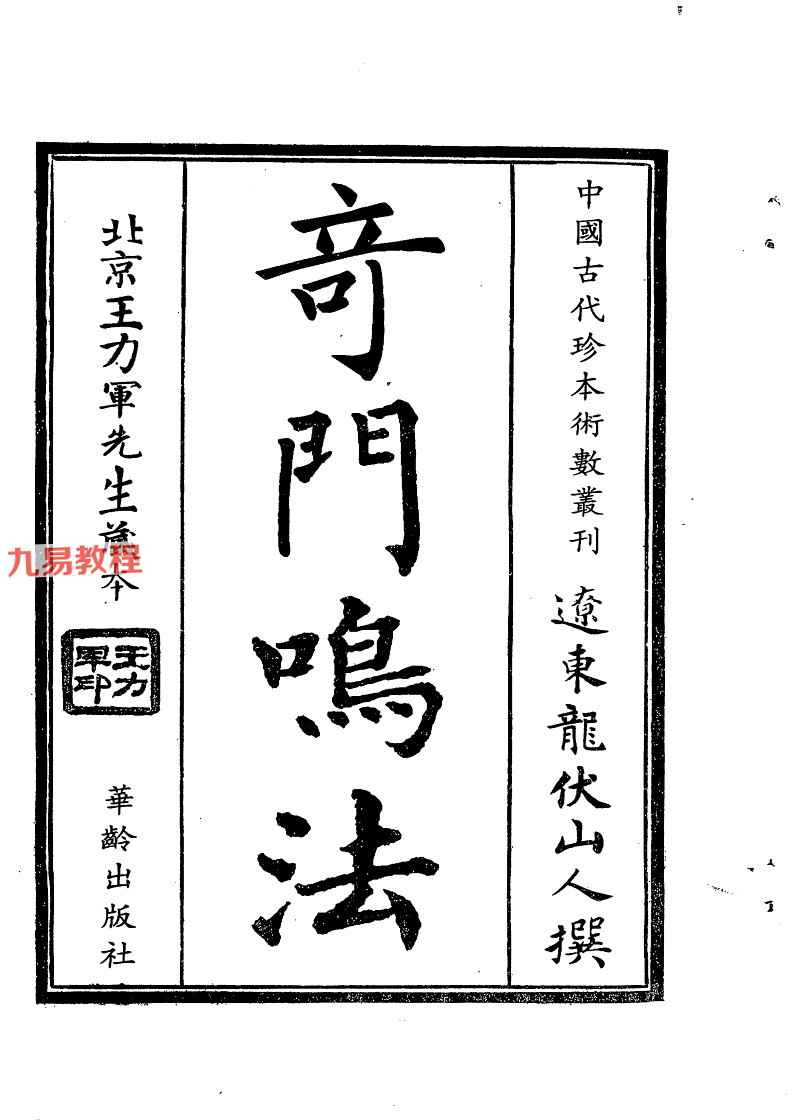 中國古代珍本術數叢刊
遼東龍伏山人撰
竒門鳴法
北京王力軍先生藏本
王力軍印
華齡出版社
九易教程